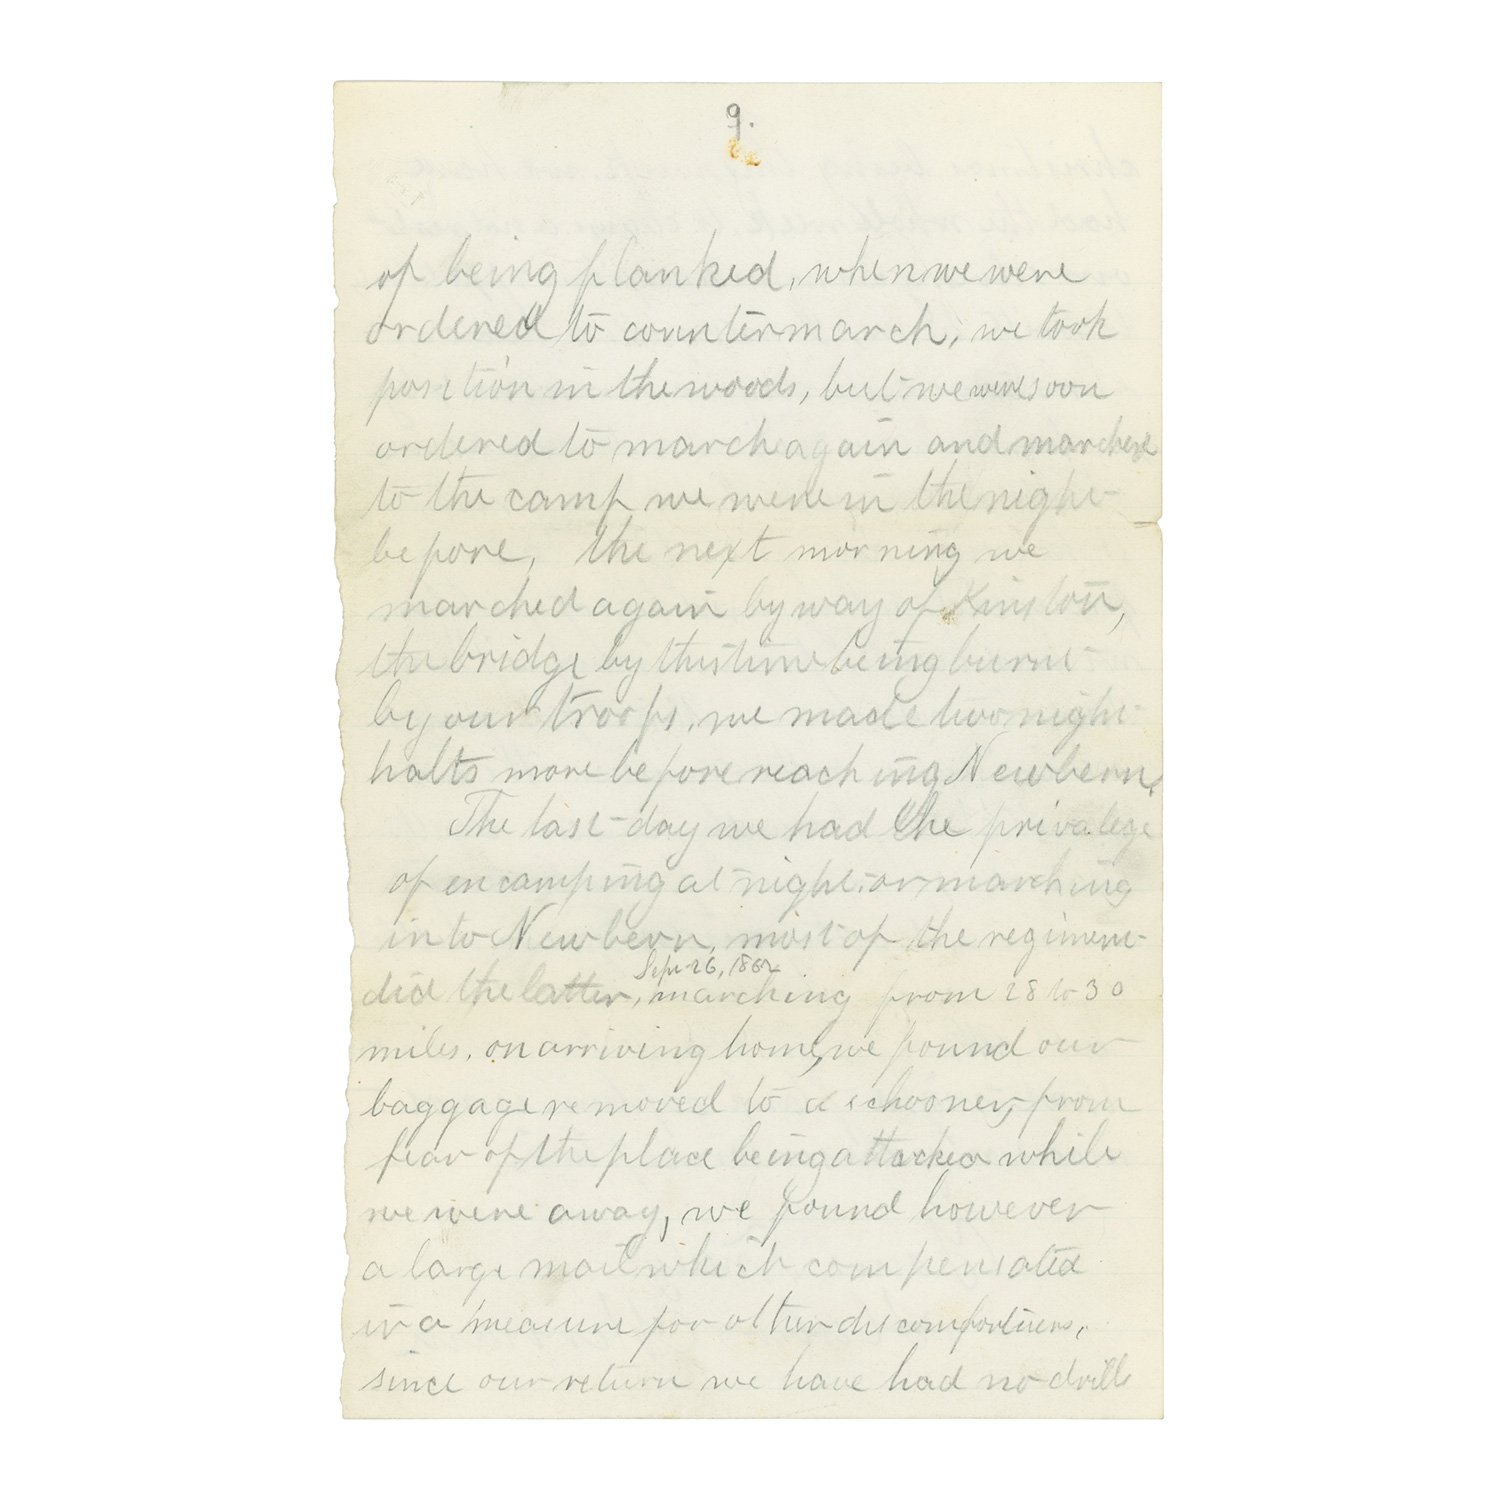 9.
of being flanked, when we were
ordered to countermarch, we took
position in the woods, but we were soon
ordered to march again and marched
to the camp we were in the night
before, the next morning we
marched again by way of Kinston,
the bridge by this time being burnt
by our troops, we made two night
halts more before reaching Newbern,
The last day we had the privalege
of encamping at night or marching
into Newbern, most of the regiment
Sept 26, 1862
did the latter, marching from 28 to 30
miles, on arriving home, we found our
baggage removed to a schooner, from
fear of the place being attacked while
we were away, we found however
a large mail which compensated
in a measure for other
since our return we have had no drills